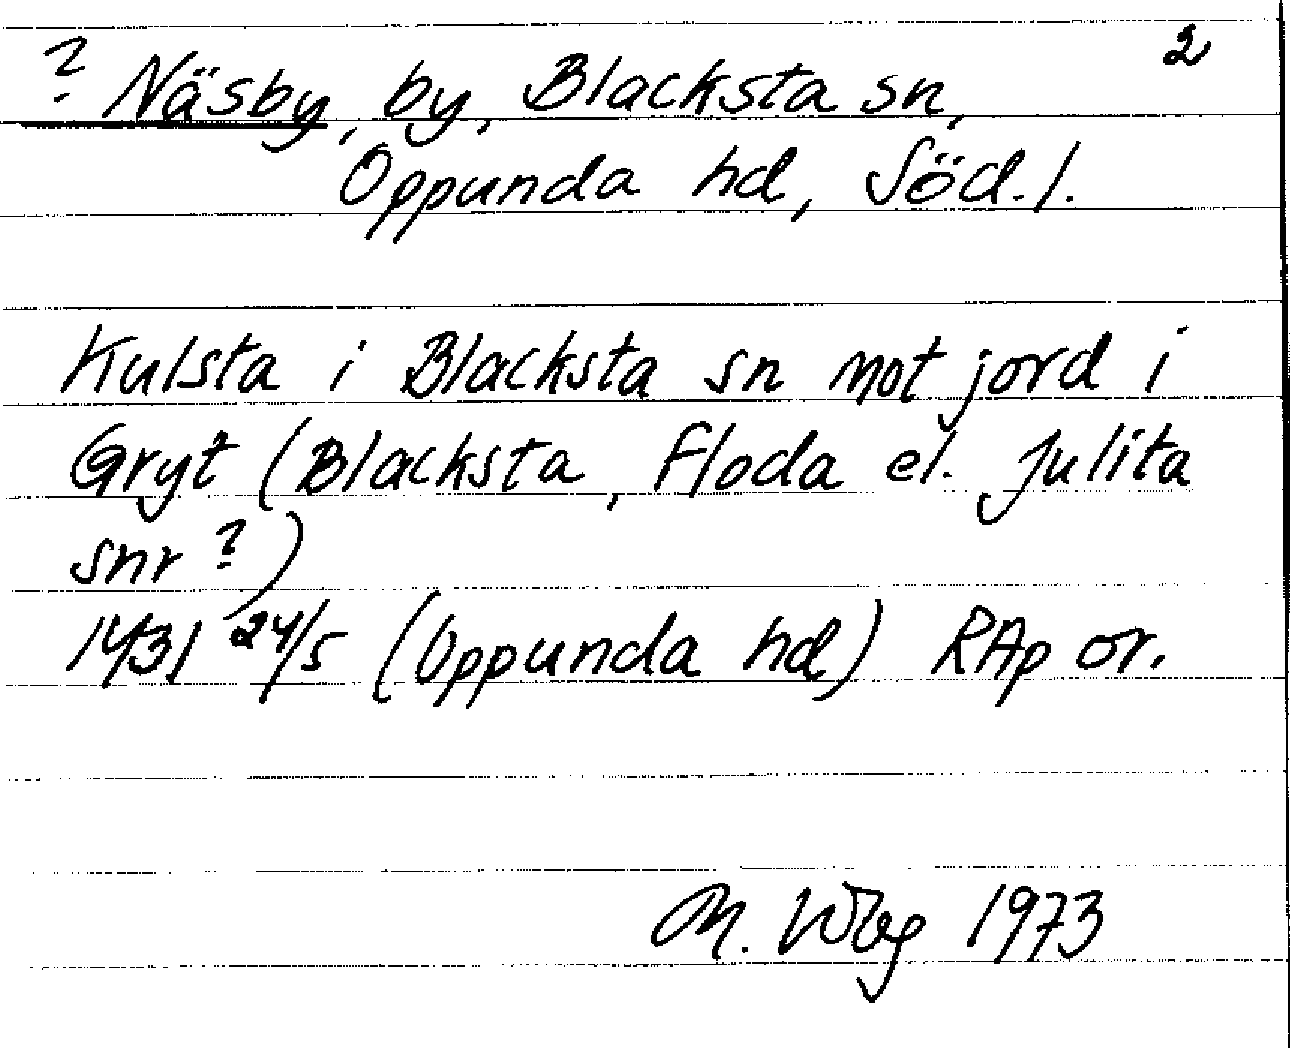 2
? Näsby, by, Blacksta sn,
Oppunda hd, Söd.l.
Kulsta i Blacksta sn mot jord i
Gryt (Blacksta, Floda el. Julita
snr?)
1431 24/5 (Oppunda hd) RAp or.
M. Wbg 1973